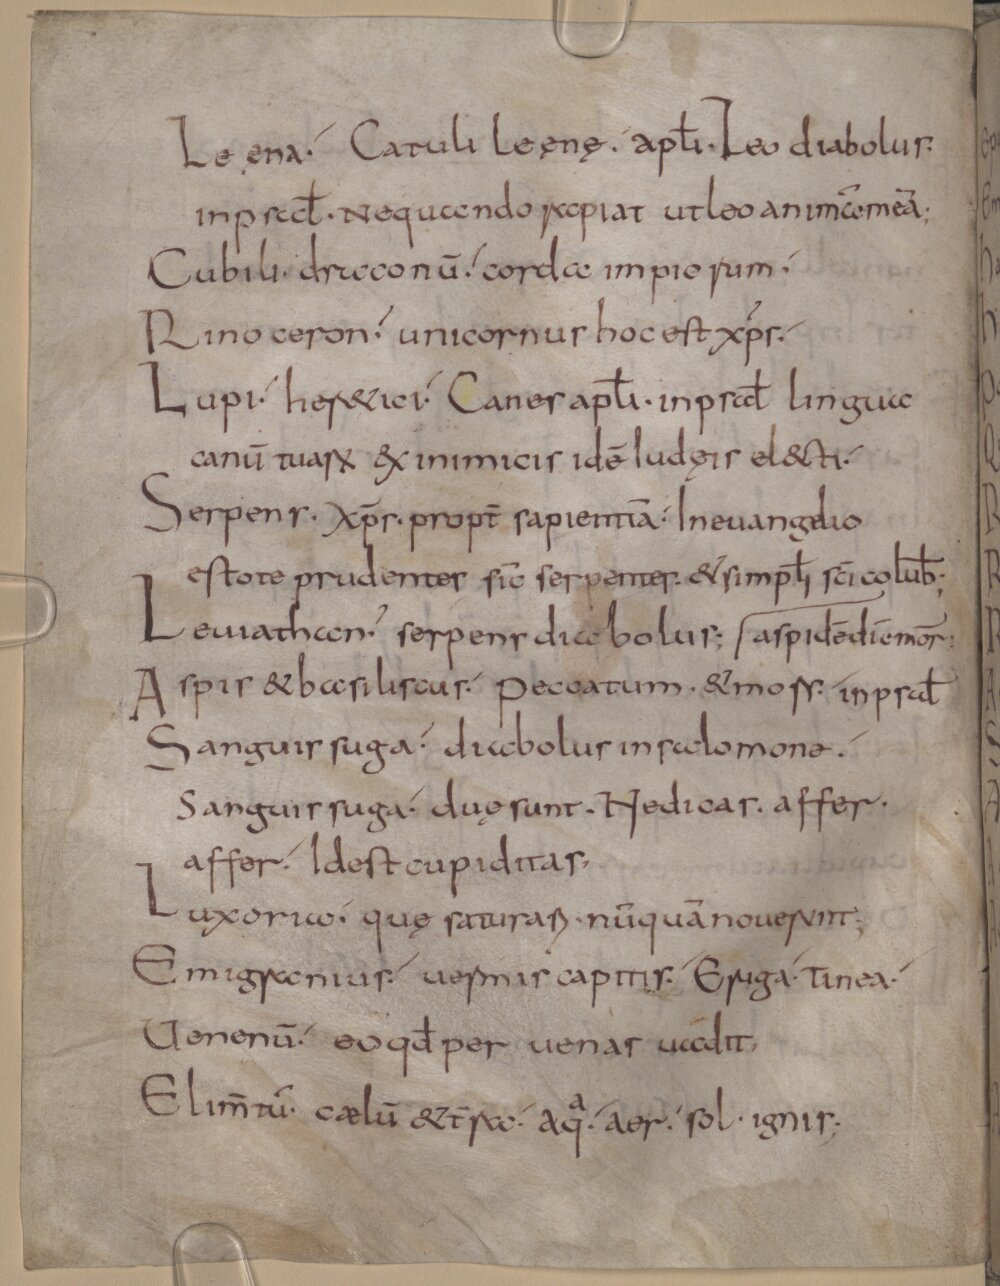 Leena ·/ Catuli leęnę ·/ apłi · Leo diabolus ·
in psał · Nequando rapiat ut leo animā meā ;
Cubili · draconū ·/ corda impiorum ·/
Rinoceron ·/ unicornus hoc est xp̄s ·/
Lupi ·/ heretici ·/ Canes apłi · in psał lingua
canū tuarū ex inimicis idē ludęis electi ·/
Serpens · xp̄s · propt̄ sapientiā ·/ In euangelio
estote prudentes sic̄ serpentes · & simpł sc̄i colūb ;
Leuiathan ·/ serpens diabolus ; aspidē diē mor̄ ·
Aspis & basiliscus ·/ peccatum · & mors · in psał
Sanguissuga ·/ diabolus in salomone ·/
Sanguissuga ·/ duę sunt · Ne dicas · affer ·
affer ·/ Id est cupiditas ,
Luxoria ·/ quę saturari · nūquā nouerunt ;
Emigranius ·/ uermis capitis ·/ Eruga ·/ Tinea ·/
Uenenū ·/ eo qđ per uenas uadit ,
Elim̄tū ·/ cælū & t̄ra ·/ aqa ·/ aer ·/ sol · ignis ;